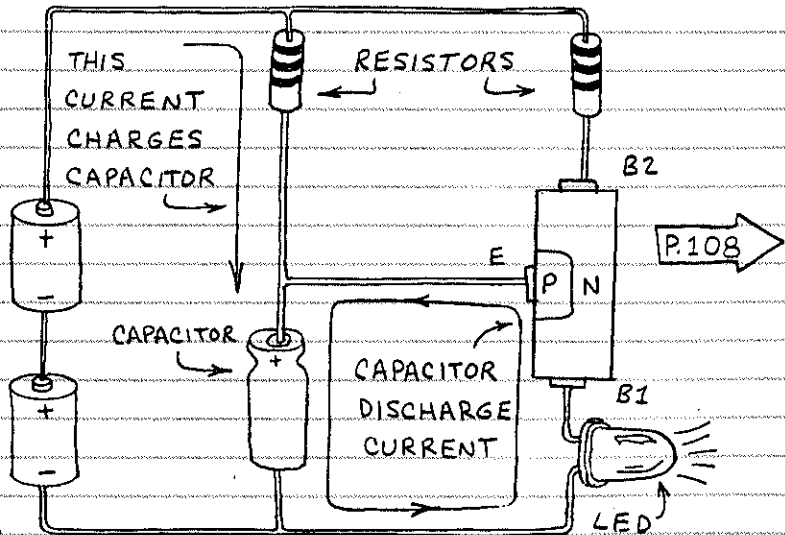 THIS
CURRENT
CHARGES
CAPACITOR
RESISTORS
B2
P.108
E
P N
+
-
CAPACITOR
+
CAPACITOR
DISCHARGE
CURRENT
B1
+
-
LED